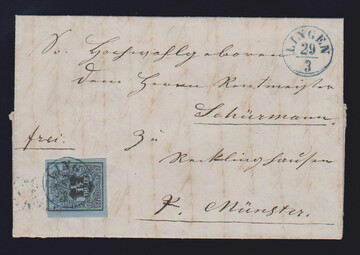 LINGEN
29
3
Sr. Hochwohlgeboren
dem Herrn Rentmeister
Schürmann.
frei.
Zu
Recklinghausen
p. Münster.
LINGEN